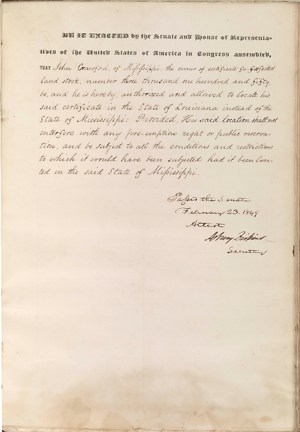 BE IT ENACTED by the Senate and House of Representa-
tives of the United States of America in Congress assembled,
THAT John Crawford, of Mississippi, the owner of certificate for forfeited
land stock, number three thousand one hundred and fifty
be, and he is hereby, authorized and allowed to locate his
said certificate in the State of Louisiana instead of the
State of Mississippi: Provided, His said location shall not
interfere with any pre-emption right or public reserva-
tion, and be subject to all the conditions and restrictions
to which it would have been subjected had it been loca-
ted in the said State of Mississippi.
Passed the Senate
February 23. 1849
Attest
Asbury Dickins
Secretary